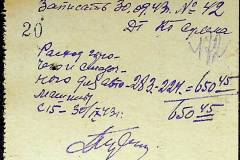 Записать 30.09.43. № 42
Дт Кт Сумма
20
Расход горю-
чего и смазоч-
ного для авто- 283-224 = 650 45
машины
с 15 - 30/IX 43 г. 650 45